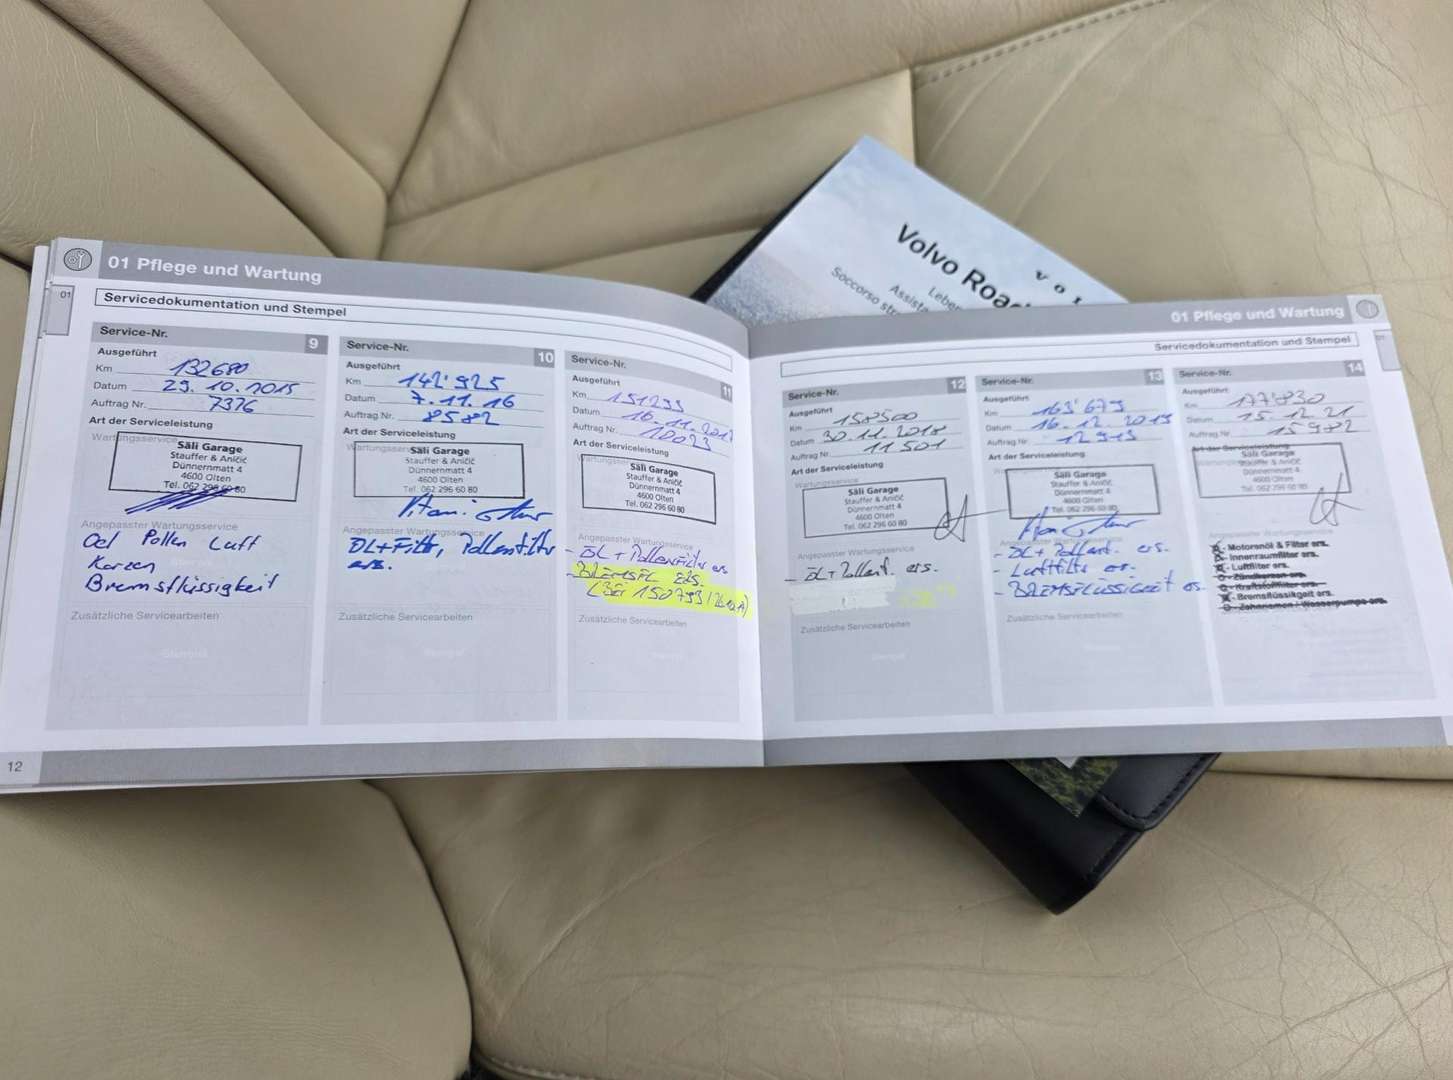 01 Pflege und Wartung
01
Servicedokumentation und Stempel
Service-Nr. 9
Ausgeführt
Km 132680
Datum 29.10.2015
Auftrag Nr. 7376
Art der Serviceleistung
Wartungsservice
Säli Garage
Stauffer & Aničić
Dünnernmatt 4
4600 Olten
Tel. 062 296 60 80
Angepasster Wartungsservice
Oel Pollen Luft
Kerzen
Bremsflüssigkeit
Zusätzliche Servicearbeiten
Service-Nr. 10
Ausgeführt
Km 142'925
Datum 7.11.16
Auftrag Nr. 8582
Art der Serviceleistung
Säli Garage
Stauffer & Aničić
Dünnernmatt 4
4600 Olten
Tel. 062 296 60 80
Angepasster Wartungsservice
ÖL+Filter, Pollenfilter
ers.
Zusätzliche Servicearbeiten
Service-Nr. 11
Ausgeführt
Km 151233
Datum 16.11.2017
Auftrag Nr. 10023
Art der Serviceleistung
Säli Garage
Stauffer & Aničić
Dünnernmatt 4
4600 Olten
Tel. 062 296 60 80
Angepasster Wartungsservice
- ÖL + Pollenfilter ers
- BREMSFL ERS.
150793
Zusätzliche Servicearbeiten
12
01 Pflege und Wartung
Servicedokumentation und Stempel
Service-Nr. 12
Ausgeführt
Km 158500
Datum 30.11.2018
Auftrag Nr. 11501
Art der Serviceleistung
Säli Garage
Stauffer & Aničić
Dünnernmatt 4
4600 Olten
Tel. 062 296 60 80
Angepasster Wartungsservice
- ÖL+Pollenf. ers.
Zusätzliche Servicearbeiten
Service-Nr. 13
Ausgeführt
Km 165'679
Datum 16.12.2019
Auftrag Nr. 12913
Art der Serviceleistung
Säli Garage
Stauffer & Aničić
Dünnernmatt 4
4600 Olten
Tel. 062 296 60 80
Angepasster Wartungsservice
- ÖL+Pollenf. ers.
- Luftfilter ers.
- BREMSFLÜSSIGKEIT ers
Zusätzliche Servicearbeiten
Service-Nr. 14
Ausgeführt
Km 177'830
Datum 15.12.21
Auftrag Nr. 15982
Art der Serviceleistung
Säli Garage
Stauffer & Aničić
Dünnernmatt 4
4600 Olten
Tel. 062 296 60 80
- Motorenöl & Filter ers.
- Innenraumfilter ers.
- Luftfilter ers.
O - Zündkerzen ers.
O - Kraftstofffilter ers.
- Bremsflüssigkeit ers.
O - Zahnriemen / Wasserpumpe ers.
Volvo Road